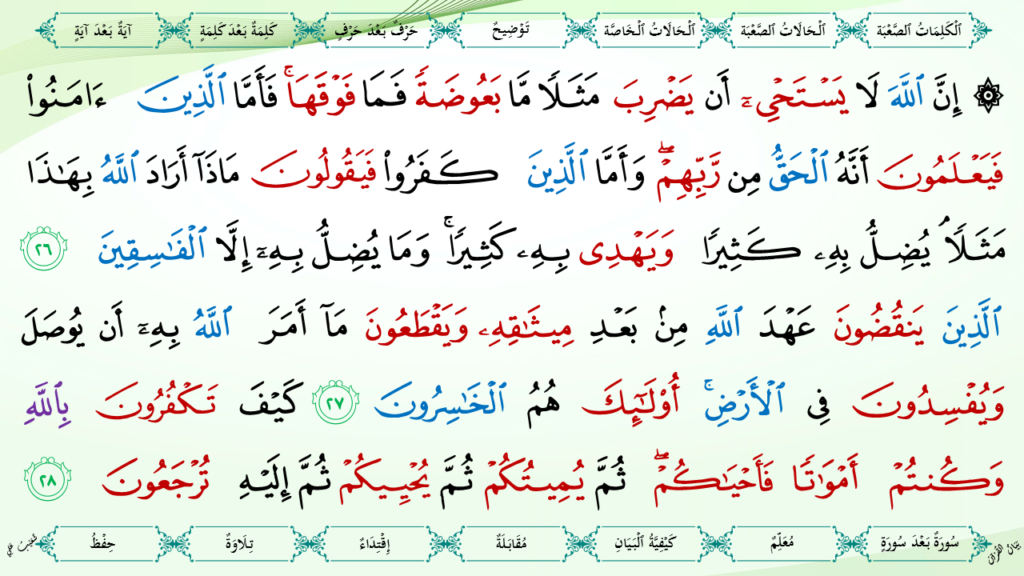 ٱلْكَلِمَاتُ ٱلصَّعْبَة ٱلْحَالَاتُ ٱلصَّعْبَة ٱلْحَالَاتُ ٱلْخَاصَّة تَوْضِيحٌ حَرْفٌ بَعْدَ حَرْفٍ كَلِمَةٌ بَعْدَ كَلِمَةٍ آيَةٌ بَعْدَ آيَةٍ
۞ إِنَّ ٱللَّهَ لَا يَسْتَحْىِۦٓ أَن يَضْرِبَ مَثَلًا مَّا بَعُوضَةً فَمَا فَوْقَهَا ۚ فَأَمَّا ٱلَّذِينَ ءَامَنُوا۟
فَيَعْلَمُونَ أَنَّهُ ٱلْحَقُّ مِن رَّبِّهِمْ ۖ وَأَمَّا ٱلَّذِينَ كَفَرُوا۟ فَيَقُولُونَ مَاذَآ أَرَادَ ٱللَّهُ بِهَـٰذَا
مَثَلًا ۘ يُضِلُّ بِهِۦ كَثِيرًا وَيَهْدِى بِهِۦ كَثِيرًا ۚ وَمَا يُضِلُّ بِهِۦٓ إِلَّا ٱلْفَـٰسِقِينَ ٢٦
ٱلَّذِينَ يَنقُضُونَ عَهْدَ ٱللَّهِ مِنۢ بَعْدِ مِيثَـٰقِهِۦ وَيَقْطَعُونَ مَآ أَمَرَ ٱللَّهُ بِهِۦٓ أَن يُوصَلَ
وَيُفْسِدُونَ فِى ٱلْأَرْضِ ۚ أُو۟لَـٰٓئِكَ هُمُ ٱلْخَـٰسِرُونَ ٢٧ كَيْفَ تَكْفُرُونَ بِٱللَّهِ
وَكُنتُمْ أَمْوَٰتًا فَأَحْيَـٰكُمْ ۖ ثُمَّ يُمِيتُكُمْ ثُمَّ يُحْيِيكُمْ ثُمَّ إِلَيْهِ تُرْجَعُونَ ٢٨
سُورَةٌ بَعْدَ سُورَةٍ مُعَلِّمٌ كَيْفِيَّةُ ٱلْبَيَانِ مُقَابَلَةٌ إِقْتِدَاءٌ تِلَاوَةٌ حِفْظٌ